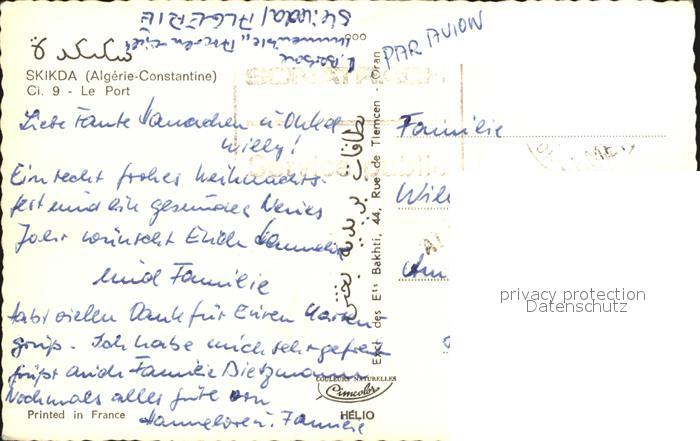 سكيكدة
SKIKDA (Algérie-Constantine)
Ci. 9 - Le Port
Skikda/ALGERIE
PAR AVION
Liebe Tante Hannchen u. Onkel
Willy!
Ein recht frohes Weihnachts-
fest und ein gesundes Neues
Jahr wünscht Euch Hannelore
und Familie
Habt vielen Dank für Euren Karten-
gruß. Ich habe mich sehr gefreut
grüßt auch Familie Dietzmann
Nochmals alles gute von
Hannelore u. Familie
Printed in France
بطاقات بريدية بختي
Excl. des Ets Bakhti, 44, Rue de Tlemcen - Oran
COULEURS NATURELLES
Cimcolor
HÉLIO
Familie
Will
privacy protection
Datenschutz